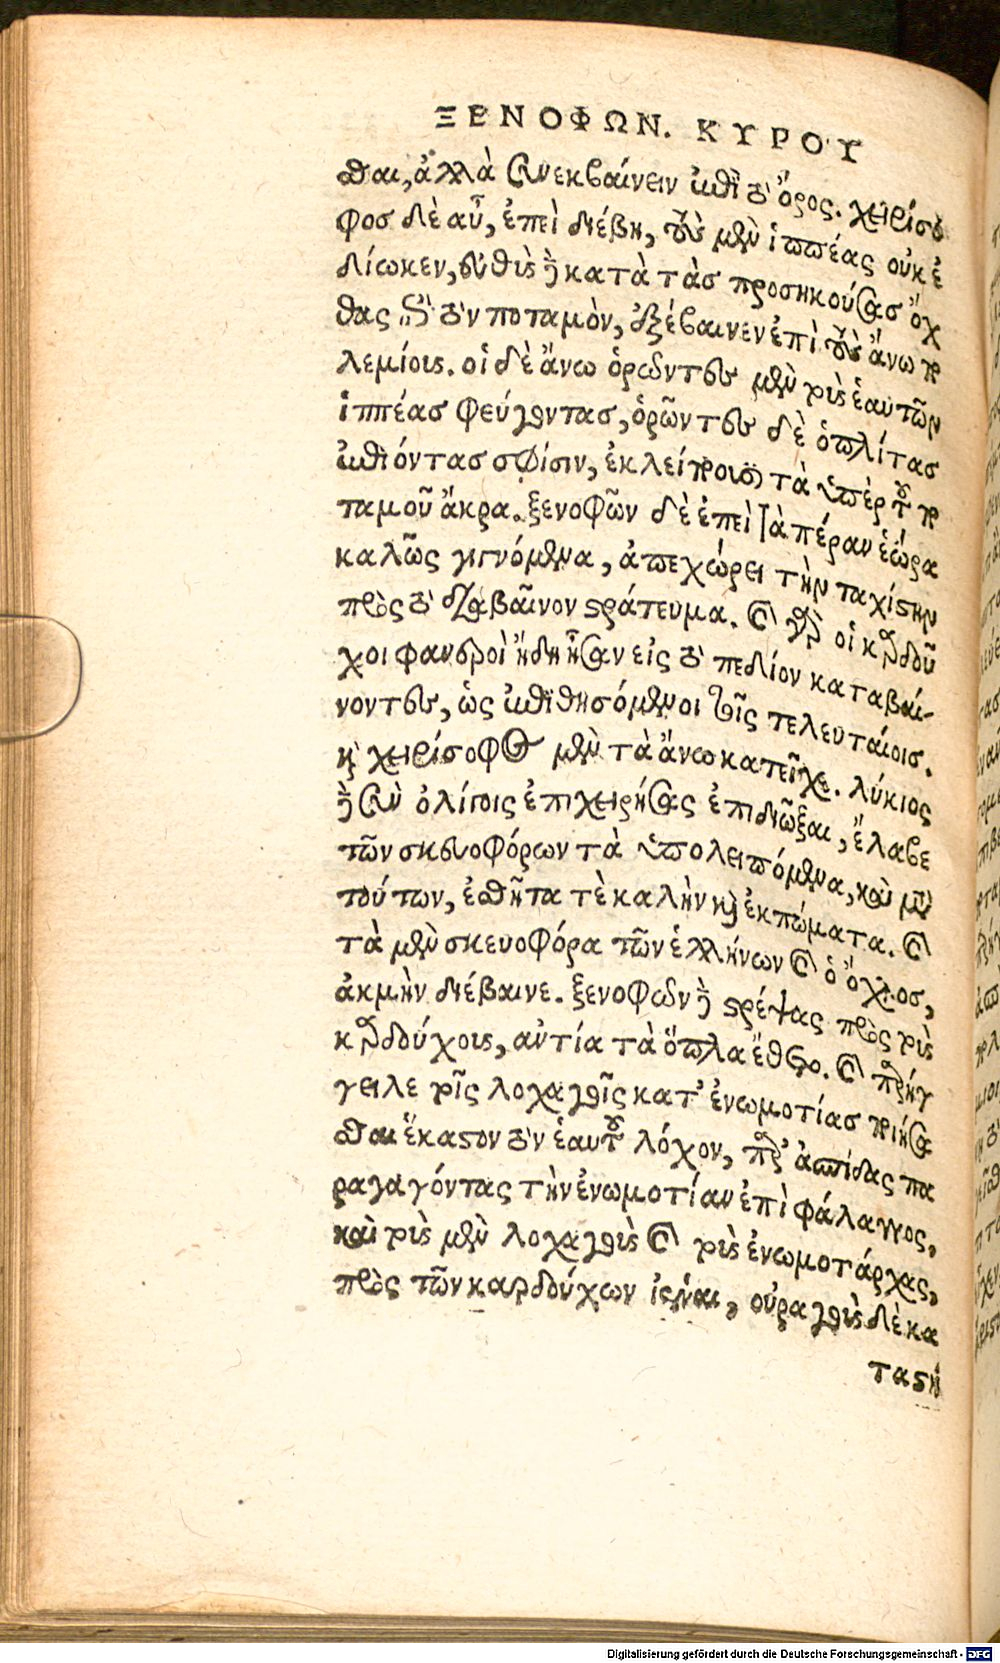 ΞΕΝΟΦΩΝ. ΚΥΡΟΥ
σθαι, ἀλλὰ συνεκβαίνειν ἐπὶ τὸ ὄρος. χειρίσο
φοσ δὲ αὖ, ἐπεὶ διέβη, τοὺς μὲν ἱππέας οὐκ ἐ
δίωκεν, εὐθὺς δὲ κατὰ τὰσ προσηκούσασ ὄχ
θας ἐπὶ τὸν ποταμὸν, ἐξέβαινεν ἐπὶ τοὺς ἄνω πο
λεμίους. οἱ δὲ ἄνω ὁρῶντες μὲν τοὺς ἑαυτῶν
ἱππέασ φεύγοντασ, ὁρῶντες δὲ ὁπλίτασ
ἐπιόντασ σφίσιν, ἐκλείπουσι τὰ ὑπὲρ τοῦ πο
ταμοῦ ἄκρα. ξενοφῶν δὲ ἐπεὶ τὰ πέραν ἑώρα
καλῶς γιγνόμενα, ἀπεχώρει τὴν ταχίστην
πρὸς τὸ διαβαῖνον στράτευμα. καὶ γὰρ οἱ καρδοῦ
χοι φανεροὶ ἤδη ἦσαν εἰς τὸ πεδίον καταβαί-
νοντες, ὡς ἐπιθησόμενοι τοῖς τελευταίοισ.
καὶ χειρίσοφος μὲν τὰ ἄνω κατεῖχε. λύκιος
δὲ σὺν ὀλίγοις ἐπιχειρήσας ἐπιδιῶξαι, ἔλαβε
τῶν σκευοφόρων τὰ ὑπολειπόμενα, καὶ μετὰ
τούτων, ἐσθῆτα τὲ καλὴν καὶ ἐκπώματα. καὶ
τὰ μὲν σκευοφόρα τῶν ἑλλήνων καὶ ὁ ὄχλοσ,
ἀκμὴν διέβαινε. ξενοφῶν δὲ στρέψας πρὸς τοὺς
καρδούχους, αὐτία τὰ ὅπλα ἔθετο. καὶ παρήγ
γειλε τοῖς λοχαγοῖς κατ' ἐνωμοτίασ ποιήσα
σθαι ἕκαστον τὸν ἑαυτοῦ λόχον, παρ' ἀσπίδας πα
ραγαγόντας τὴν ἐνωμοτίαν ἐπὶ φάλαγγος,
καὶ τοὺς μὲν λοχαγοὺς καὶ τοὺς ἐνωμοτάρχας,
πρὸς τῶν καρδούχων ἰέναι, οὐραγοὺς δὲ κα
ταστή
Digitalisierung gefördert durch die Deutsche Forschungsgemeinschaft - DFG